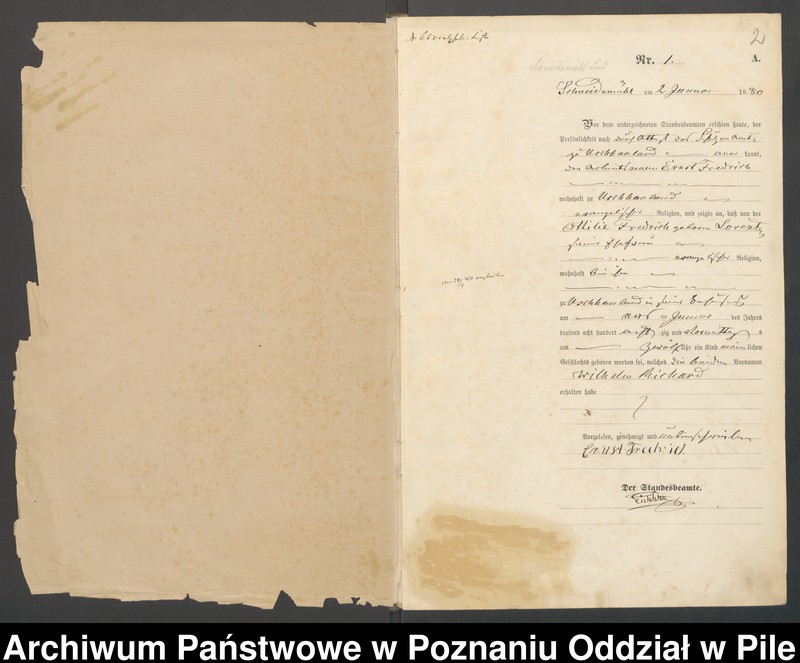 2
Nr. 1.
A.
Schneidemühl am 2 Januar 1880
Vor dem unterzeichneten Standesbeamten erschien heute, der
Persönlichkeit nach durch Attest des
zu Uschhauland kannt,
den Arbeitsmann Ernst Fredrich
wohnhaft zu Uschhauland
evangelischer Religion, und zeigte an, daß von der
Ottilie Fredrich geboren Lorentz
seiner Ehefrau
evangelischer Religion,
wohnhaft bei ihm
zu Uschhauland in seiner Behausung
am Januar des Jahres
tausend acht hundert zig und Vormittags
um zwölf Uhr ein Kind männlichen
Geschlechts geboren worden sei, welches die beiden Vornamen
Wilhelm Richard
erhalten habe
Vorgelesen, genehmigt und unterschrieben
Ernst Fredrich
Der Standesbeamte.
Archiwum Państwowe w Poznaniu Oddział w Pile